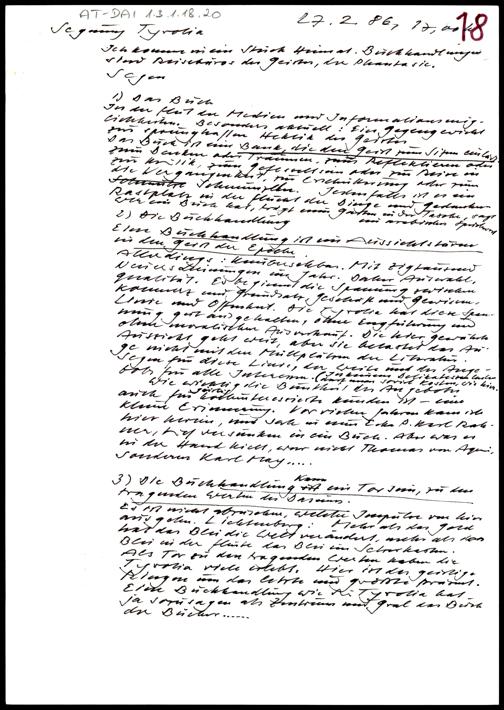 AT-DAI 1.3.1.18.20
27. 2. 86, 17,00
18
Segnung Tyrolia
Ich komme in ein Stück Heimat. Buchhandlungen
sind Reisebüros des Geistes, der Phantasie.
Segen
1) Das Buch
In der Flut der Medien und Informationsmög-
lichkeiten. Besonders aktuell: Ein Gegengewicht
zur sprunghaften Hektik des Geistes
Das Buch ist eine Bank, die den Geist zum Sitzen einlädt
zum Denken oder Träumen, zum Reflektieren oder
zur Kritik, zum oder zur Reise in
die Vergangenheit, zur Erheiterung oder zum
Schmunzeln. Jedenfalls ist es ein
Rastplatz in der Flucht der Dinge und Gedanken
Wer ein Buch hat, trägt einen Garten in der Tasche, sagt
ein arabisches Sprichwort
2) Die Buchhandlung
Eine Buchhandlung ist ein Aussichtsturm
in den Geist der Epoche.
Allerdings: Mit Zigtausend
Neuerscheinungen im Jahr. Daher Auswahl,
Qualität. Es beginnt die Spannung zwischen
Kommerz und Grundsatz, Geschäft und Gewissen.
Linie und Offenheit. Die Tyrolia hat diese Span-
nung gut ausgehalten, ohne Engführung und
ohne moralischen Ausverkauf. Die hier gewährte
Aussicht geht weit, aber sie belastet das Au-
ge nicht mit den Müllplätzen der Literatur.
Segen für diese Linie, der Weite und des Ange-
bots für alle Interessen
Wie wichtig die Buntheit des Angebots
auch für seriöse kunden ist – eine
kleine Erinnerung. Vor vielen Jahren kam ich
hier herein, und sah in einer Ecke P. Karl Rah-
ner, tief versunken in ein Buch. Aber was er
in der Hand hielt, war nicht Thomas von Aquin,
sondern Karl May.....
3) Die Buchhandlung kann ein Tor sein, zu den
tragenden Werten des Daseins.
Es ist nicht abzusehen, welche Impulse von hier
ausgehn. Lichtenberg: Mehr als das Gold
hat das Blei die Welt verändert, mehr als das
Blei in der Flinte das Blei im Setzerkasten.
Als Tor zu den tragenden Werten haben die
Tyrolia viele erlebt. Hier ist das geistige
Ringen um das letzte und größte präsent.
Eine Buchhandlung wie die Tyrolia hat
ja sozusagen als Zentrum und Gral das Buch
der Bücher......